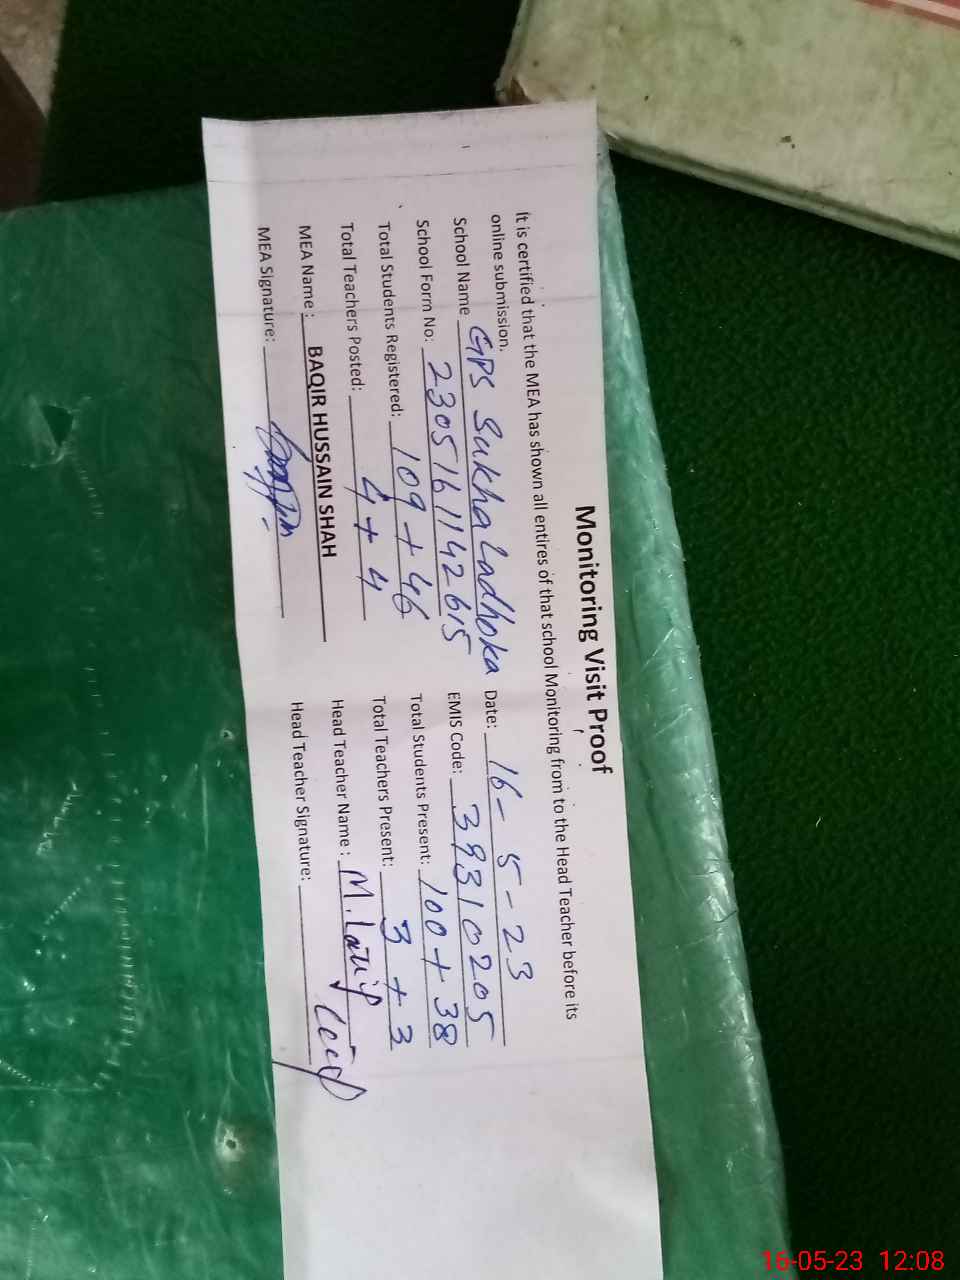 Monitoring Visit Proof
It is certified that the MEA has shown all entires of that school Monitoring from to the Head Teacher before its
online submission.
School Name GPS Sukha Ladhoka Date: 16-5-23
School Form No: 2305161142615 EMIS Code: 39310205
Total Students Registered: 109 + 46 Total Students Present: 100 + 38
Total Teachers Posted: 4 + 4 Total Teachers Present: 3 + 3
MEA Name : BAQIR HUSSAIN SHAH Head Teacher Name : M. Latif
MEA Signature: Head Teacher Signature:
16-05-23 12:08